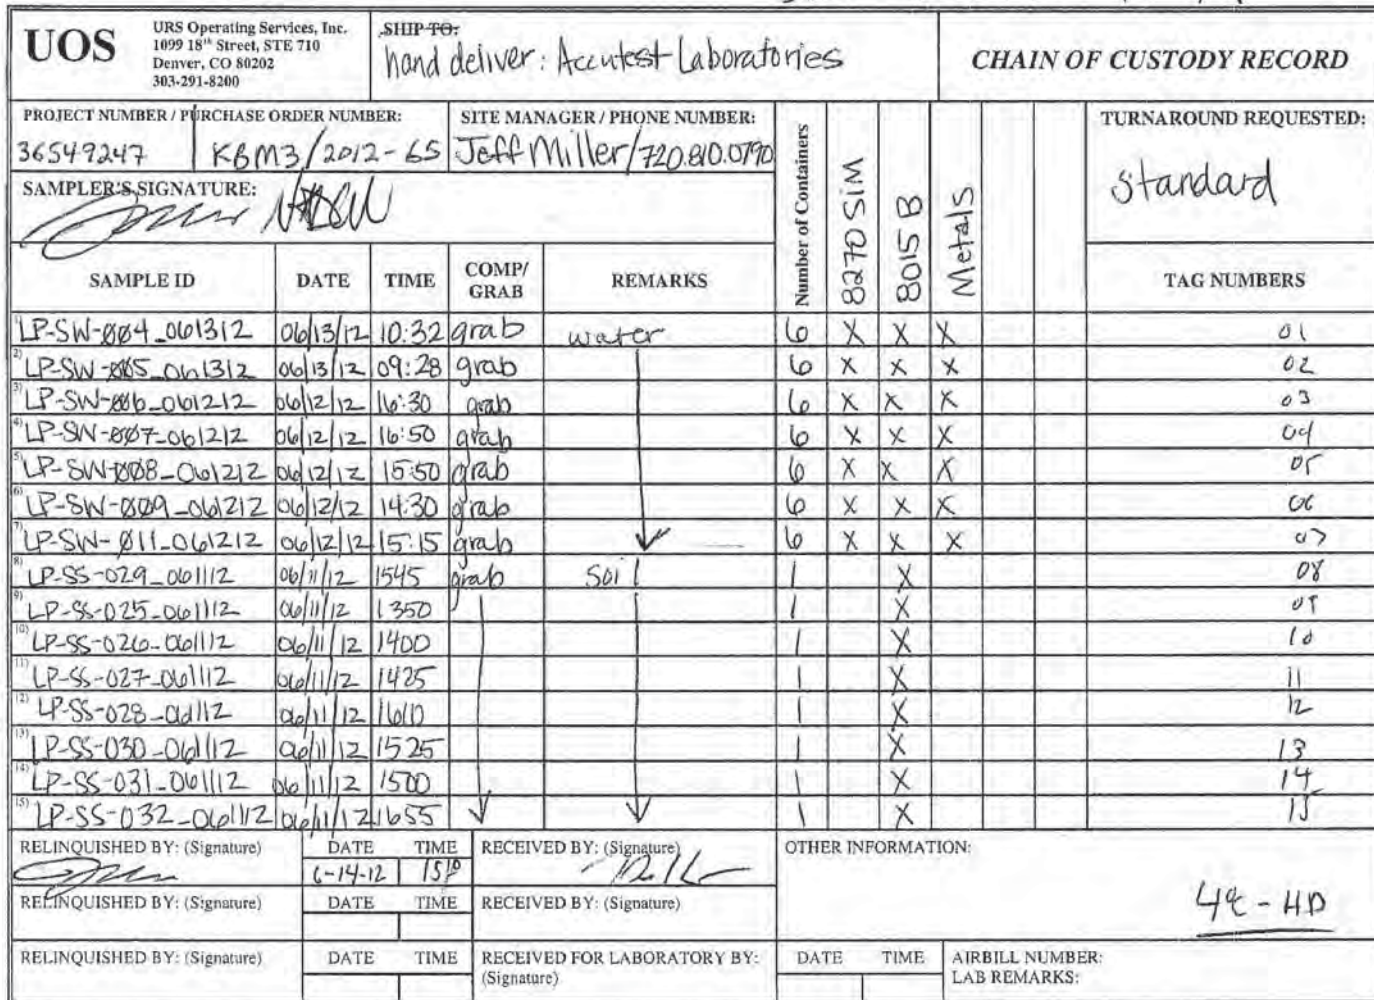 UOS
URS Operating Services, Inc.
1099 18th Street, STE 710
Denver, CO 80202
303-291-8200
SHIP TO:
hand deliver: Accutest Laboratories
CHAIN OF CUSTODY RECORD
PROJECT NUMBER / PURCHASE ORDER NUMBER:
36549247 | KBM3/2012-65
SITE MANAGER / PHONE NUMBER:
Jeff Miller/720.810.0790
SAMPLER'S SIGNATURE:
Number of Containers
8270 SIM
8015 B
Metals
TURNAROUND REQUESTED:
Standard
SAMPLE ID DATE TIME COMP/ GRAB REMARKS TAG NUMBERS
1) LP-SW-004_061312 06/13/12 10:32 grab water 6 X X X 01
2) LP-SW-005_061312 06/13/12 09:28 grab 6 X X X 02
3) LP-SW-006_061212 06/12/12 16:30 grab 6 X X X 03
4) LP-SW-007_061212 06/12/12 16:50 grab 6 X X X 04
5) LP-SW-008_061212 06/12/12 15:50 grab 6 X X X 05
6) LP-SW-009_061212 06/12/12 14:30 grab 6 X X X 06
7) LP-SW-011_061212 06/12/12 15:15 grab 6 X X X 07
8) LP-SS-029_061112 06/11/12 1545 grab Soil 1 X 08
9) LP-SS-025_061112 06/11/12 1350 1 X 09
10) LP-SS-026_061112 06/11/12 1400 1 X 10
11) LP-SS-027_061112 06/11/12 1425 1 X 11
12) LP-SS-028_061112 06/11/12 1610 1 X 12
13) LP-SS-030_061112 06/11/12 1525 1 X 13
14) LP-SS-031_061112 06/11/12 1500 1 X 14
15) LP-SS-032_061112 06/11/12 1655 1 X 15
RELINQUISHED BY: (Signature) DATE TIME RECEIVED BY: (Signature) OTHER INFORMATION:
6-14-12 1510
4°C - HD
RELINQUISHED BY: (Signature) DATE TIME RECEIVED BY: (Signature)
RELINQUISHED BY: (Signature) DATE TIME RECEIVED FOR LABORATORY BY: (Signature) DATE TIME AIRBILL NUMBER:
LAB REMARKS: